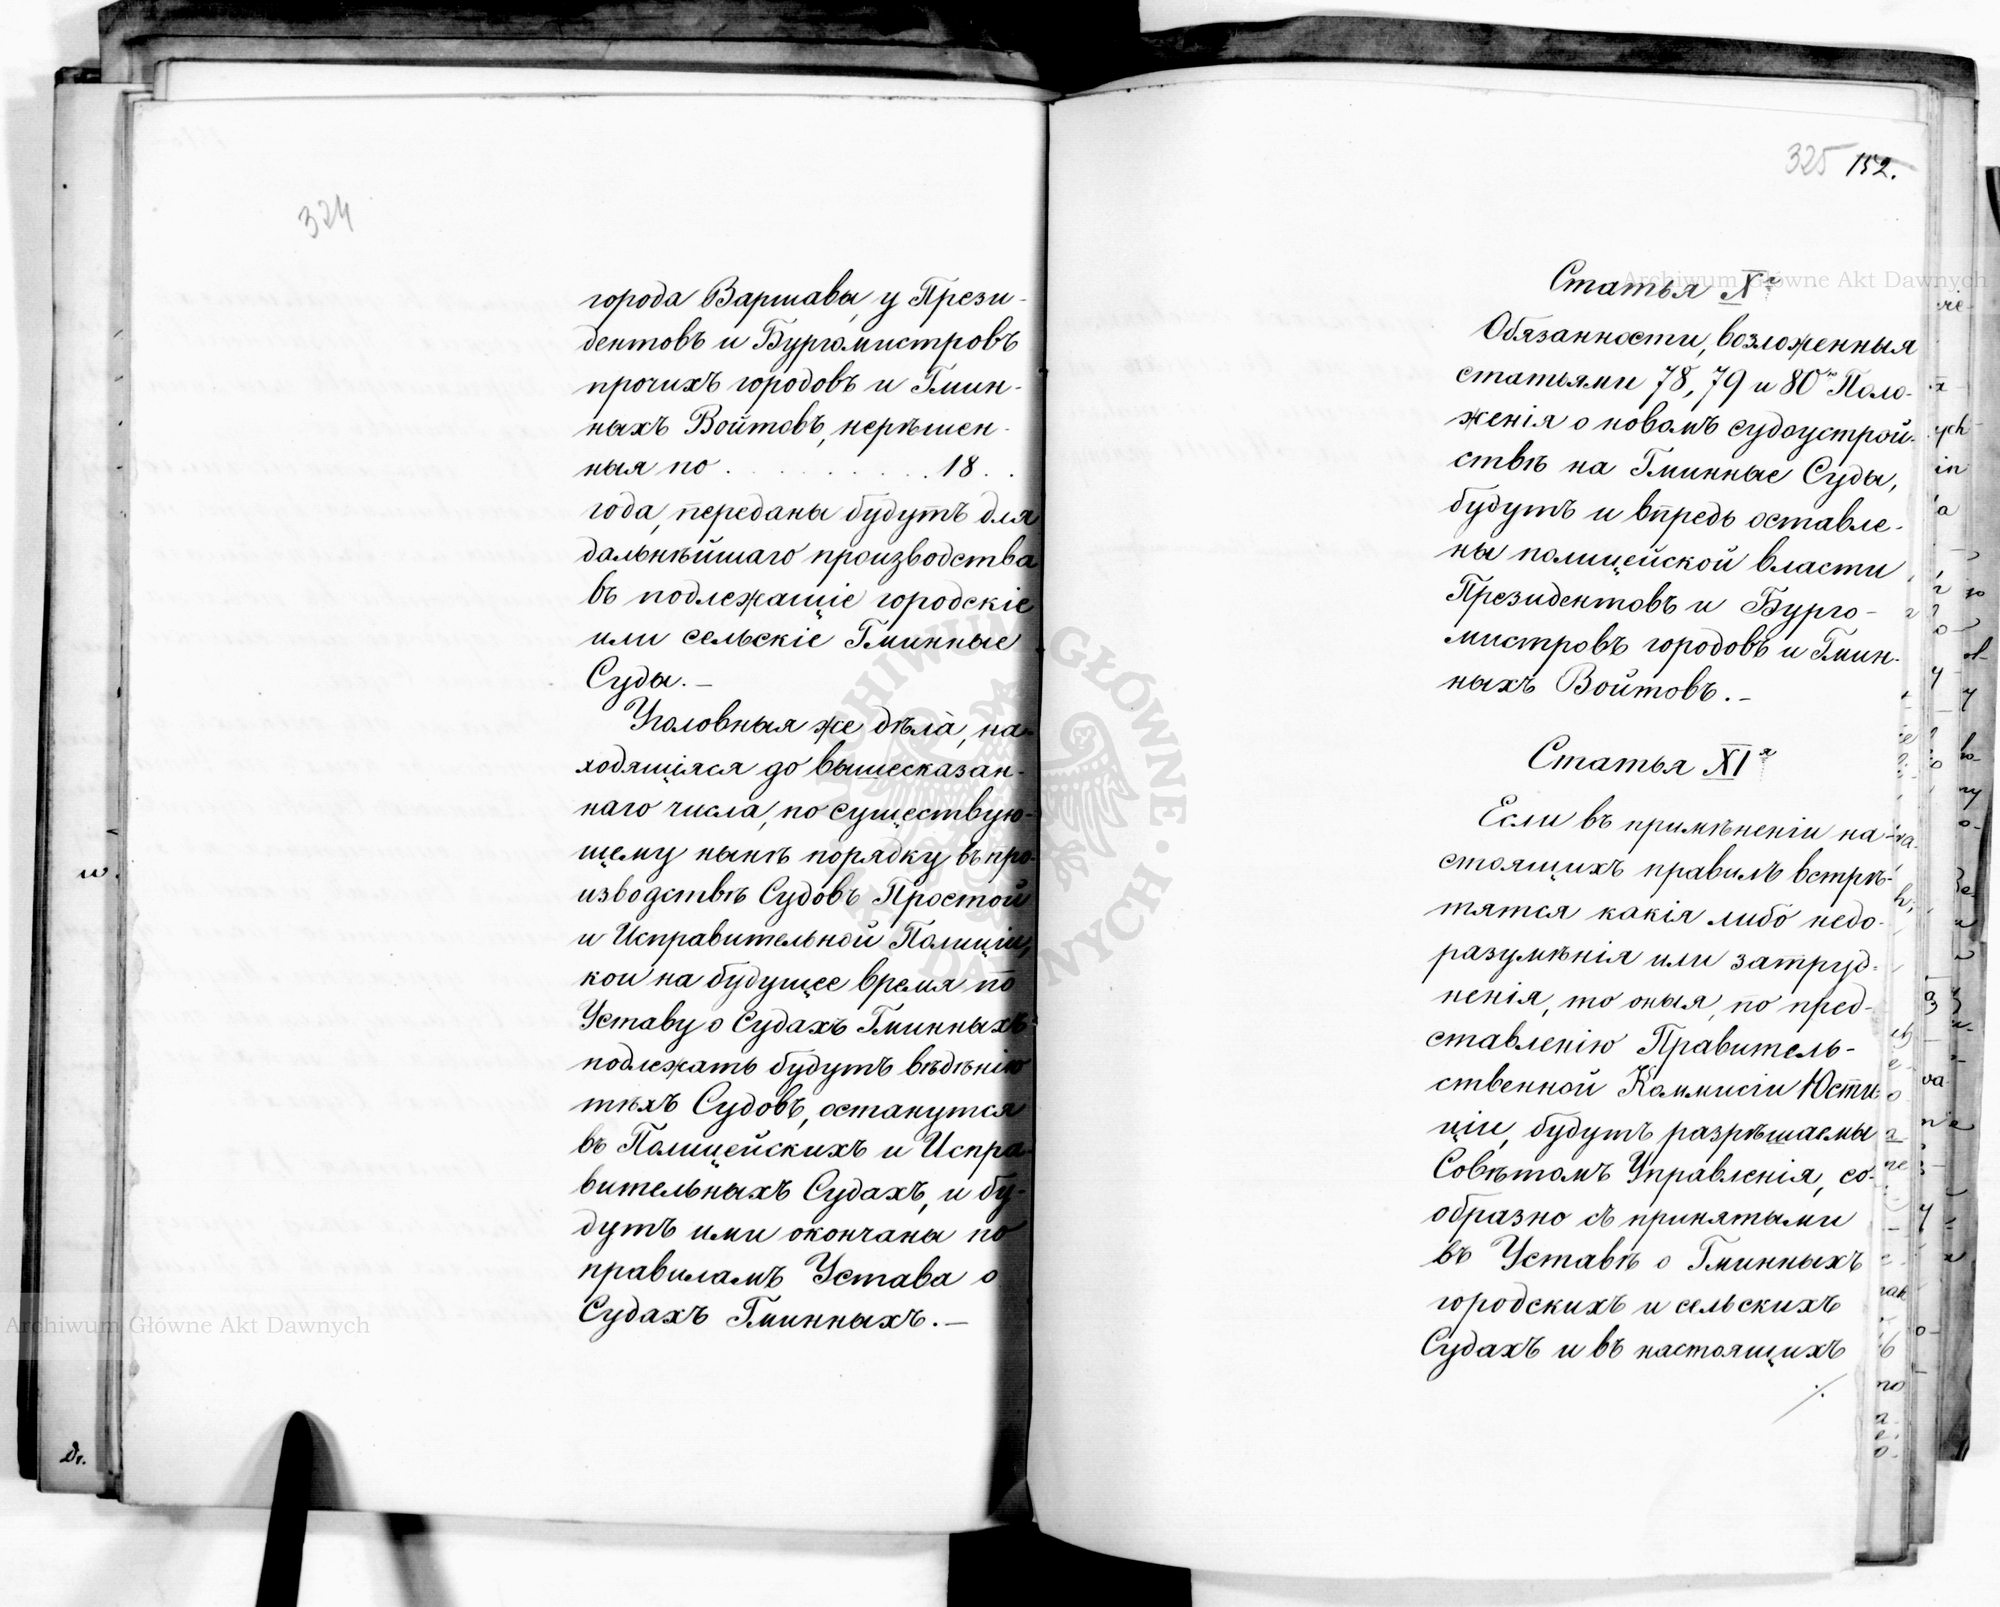 324
города Варшавы, у Прези-
дентовъ и Бургомистровъ
прочихъ городовъ и Гмин-
ныхъ Войтовъ, нерѣшен-
ныя по . . . . . . . . . 18 . .
года, переданы будутъ для
дальнѣйшаго производства
въ подлежащіе городскіе
или сельскіе Гминные
Суды. —
Уголовныя же дѣла, на-
ходящіяся до вышесказан-
наго числа, по существую-
щему нынѣ порядку въ про-
изводствѣ Судовъ Простой
и Исправительной Полиціи,
кои на будущее время по
Уставу о Судахъ Гминныхъ
подлежать будутъ вѣдѣнію
тѣхъ Судовъ, останутся
въ Полицейскихъ и Испра-
вительныхъ Судахъ, и бу-
дутъ ими окончаны по
правиламъ Устава о
Судахъ Гминныхъ. —
325 152.
Статья Xя
Обязанности, возложенныя
статьями 78, 79 и 80ю Поло-
женія о новомъ судоустрой-
ствѣ на Гминные Суды,
будутъ и впредь оставле-
ны полицейской власти
Президентовъ и Бурго-
мистровъ городовъ и Гмин-
ныхъ Войтовъ. —
Статья XIя
Если въ примѣненіи на-
стоящихъ правилъ встрѣ-
тятся какія либо недо-
разумѣнія или затруд-
ненія, то оныя, по пред-
ставленію Правитель-
ственной Коммисіи Юсти-
ціи, будутъ разрѣшаемы
Совѣтомъ Управленія, со-
образно съ принятыми
въ Уставѣ о Гминныхъ
городскихъ и сельскихъ
Судахъ и въ настоящихъ
./.
Archiwum Główne Akt Dawnych
Archiwum Główne Akt Dawnych
ARCHIWUM GŁÓWNE AKT DAWNYCH